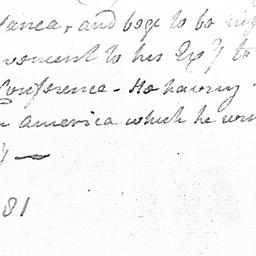 and begs to be
venient to his Exy to
Conference - He having
America which he
81